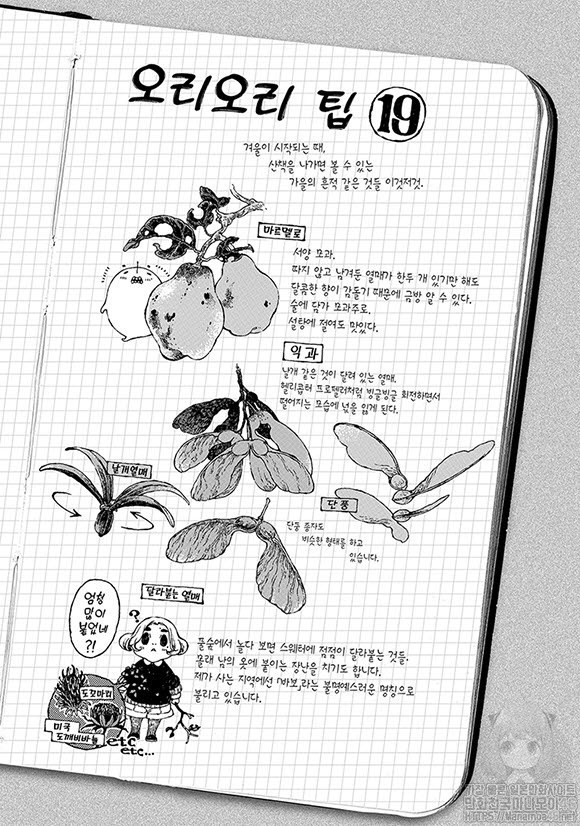 오리오리 팁 19
겨울이 시작되는 때,
산책을 나가면 볼 수 있는
가을의 흔적 같은 것들 이것저것.
마르멜로
서양 모과.
따지 않고 남겨둔 열매가 한두 개 있기만 해도
달콤한 향이 감돌기 때문에 금방 알 수 있다.
술에 담가 모과주로.
설탕에 절여도 맛있다.
익과
날개 같은 것이 달려 있는 열매.
헬리콥터 프로펠러처럼 빙글빙글 회전하면서
떨어지는 모습에 넋을 잃게 된다.
날개열매
단풍
단풍 종자도
비슷한 형태를 하고
있습니다.
달라붙는 열매
엄청
많이
붙었네
?!
?
풀숲에서 놀다 보면 스웨터에 점점이 달라붙는 것들.
몰래 남의 옷에 붙이는 장난을 치기도 합니다.
제가 사는 지역에선 「바보」라는 불명예스러운 명칭으로
불리고 있습니다.
도꼬마리
미국
도깨비바늘
etc
etc...
가장 빠른 일본만화사이트
만화천국 마나모아